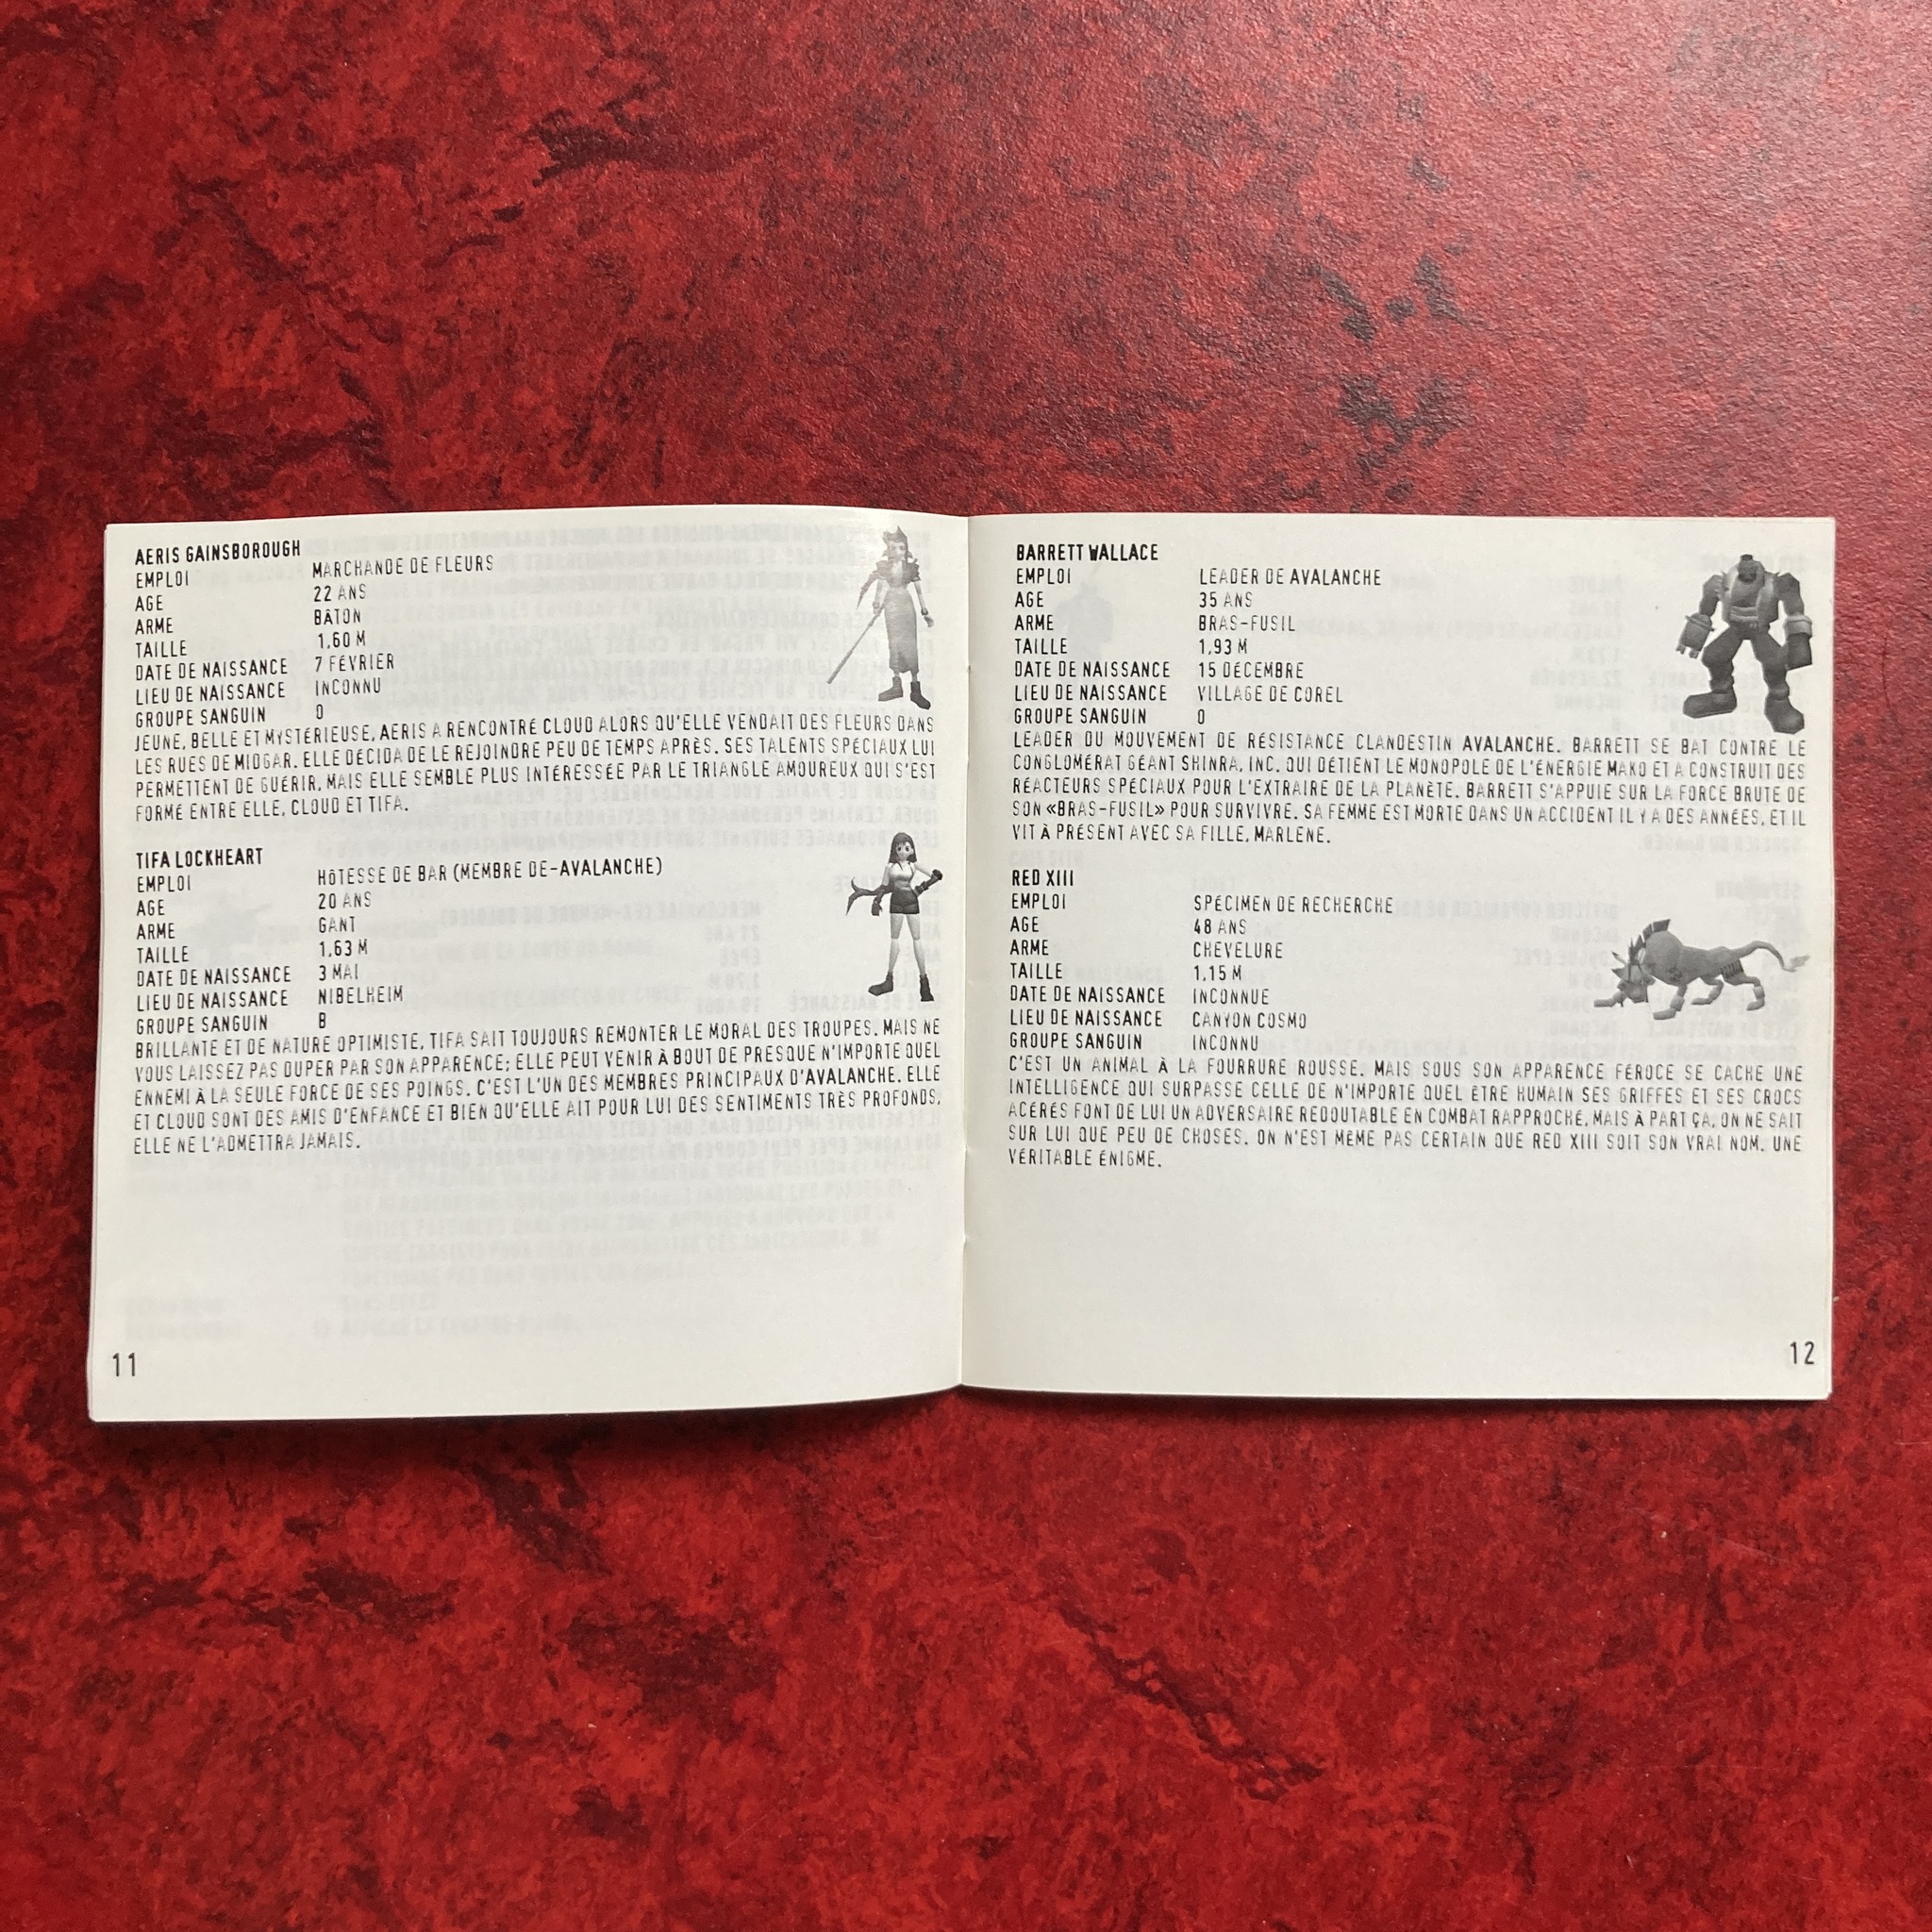 AERIS GAINSBOROUGH
EMPLOI MARCHANDE DE FLEURS
AGE 22 ANS
ARME BÂTON
TAILLE 1,60 M
DATE DE NAISSANCE 7 FÉVRIER
LIEU DE NAISSANCE INCONNU
GROUPE SANGUIN O
JEUNE, BELLE ET MYSTÉRIEUSE, AERIS A RENCONTRÉ CLOUD ALORS QU'ELLE VENDAIT DES FLEURS DANS
LES RUES DE MIDGAR. ELLE DÉCIDA DE LE REJOINDRE PEU DE TEMPS APRÈS. SES TALENTS SPÉCIAUX LUI
PERMETTENT DE GUÉRIR, MAIS ELLE SEMBLE PLUS INTÉRESSÉE PAR LE TRIANGLE AMOUREUX QUI S'EST
FORMÉ ENTRE ELLE, CLOUD ET TIFA.
TIFA LOCKHEART
EMPLOI HÔTESSE DE BAR (MEMBRE DE-AVALANCHE)
AGE 20 ANS
ARME GANT
TAILLE 1,63 M
DATE DE NAISSANCE 3 MAI
LIEU DE NAISSANCE NIBELHEIM
GROUPE SANGUIN B
BRILLANTE ET DE NATURE OPTIMISTE, TIFA SAIT TOUJOURS REMONTER LE MORAL DES TROUPES. MAIS NE
VOUS LAISSEZ PAS DUPER PAR SON APPARENCE; ELLE PEUT VENIR À BOUT DE PRESQUE N'IMPORTE QUEL
ENNEMI À LA SEULE FORCE DE SES POINGS. C'EST L'UN DES MEMBRES PRINCIPAUX D'AVALANCHE. ELLE
ET CLOUD SONT DES AMIS D'ENFANCE ET BIEN QU'ELLE AIT POUR LUI DES SENTIMENTS TRÈS PROFONDS,
ELLE NE L'ADMETTRA JAMAIS.
11
BARRETT WALLACE
EMPLOI LEADER DE AVALANCHE
AGE 35 ANS
ARME BRAS-FUSIL
TAILLE 1,93 M
DATE DE NAISSANCE 15 DÉCEMBRE
LIEU DE NAISSANCE VILLAGE DE COREL
GROUPE SANGUIN O
LEADER DU MOUVEMENT DE RÉSISTANCE CLANDESTIN AVALANCHE. BARRETT SE BAT CONTRE LE
CONGLOMÉRAT GÉANT SHINRA, INC. QUI DÉTIENT LE MONOPOLE DE L'ÉNERGIE MAKO ET A CONSTRUIT DES
RÉACTEURS SPÉCIAUX POUR L'EXTRAIRE DE LA PLANÈTE. BARRETT S'APPUIE SUR LA FORCE BRUTE DE
SON «BRAS-FUSIL» POUR SURVIVRE. SA FEMME EST MORTE DANS UN ACCIDENT IL Y A DES ANNÉES, ET IL
VIT À PRÉSENT AVEC SA FILLE, MARLENE.
RED XIII
EMPLOI SPÉCIMEN DE RECHERCHE
AGE 48 ANS
ARME CHEVELURE
TAILLE 1,15 M
DATE DE NAISSANCE INCONNUE
LIEU DE NAISSANCE CANYON COSMO
GROUPE SANGUIN INCONNU
C'EST UN ANIMAL À LA FOURRURE ROUSSE. MAIS SOUS SON APPARENCE FÉROCE SE CACHE UNE
INTELLIGENCE QUI SURPASSE CELLE DE N'IMPORTE QUEL ÊTRE HUMAIN SES GRIFFES ET SES CROCS
ACÉRÉS FONT DE LUI UN ADVERSAIRE REDOUTABLE EN COMBAT RAPPROCHÉ, MAIS À PART ÇA, ON NE SAIT
SUR LUI QUE PEU DE CHOSES. ON N'EST MÊME PAS CERTAIN QUE RED XIII SOIT SON VRAI NOM. UNE
VÉRITABLE ÉNIGME.
12